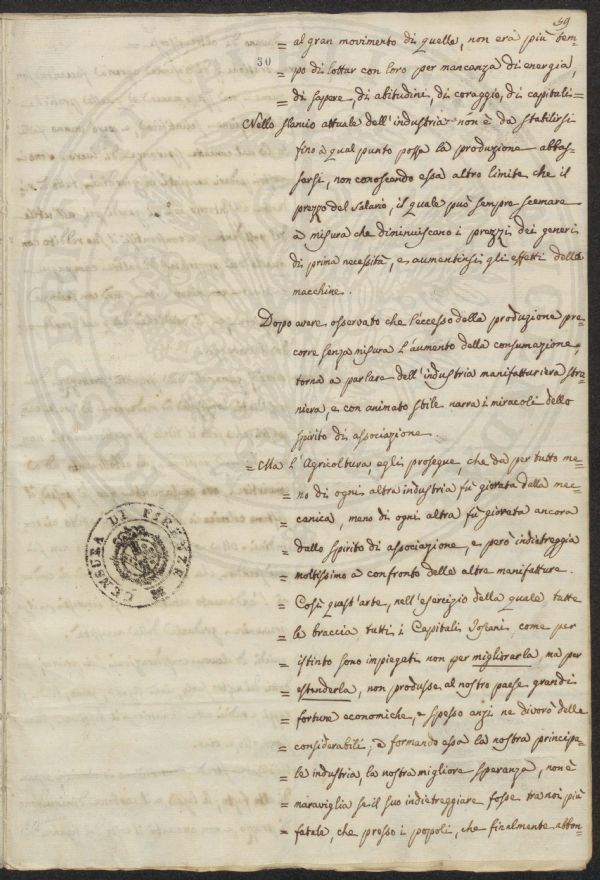 59
30
= al gran movimento di quelle, non era più tem-
= po di lottar con loro per mancanza di energia,
= di sapere, di abitudini, di coraggio, di capitali =
Nello slancio attuale dell'industria non è da stabilirsi
fino a qual punto possa la produzione abbas-
sarsi, non conoscendo essa altro limite che il
prezzo del salario, il quale può sempre scemare
a misura che diminuiscano i prezzi dei generi
di prima necessità, e aumentinsi gli effetti delle
macchine.
Dopo avere osservato che l'eccesso della produzione pre-
corre senza misura l'aumento della consumazione,
torna a parlare dell'industria manifatturiera stra-
niera, e con animato stile narra i miracoli dello
spirito di associazione.
= Ma l'Agricoltura, egli prosegue, che da per tutto me-
= no di ogni altra industria fù giovata dalla mec-
= canica, meno di ogni altra fù giovata ancora
= dallo spirito di associazione, e però indietreggia
= moltissimo a confronto delle altre manifatture.
= Così quest'arte, nell'esercizio della quale tutte
= le braccia, tutti i Capitali Toscani, come per
= istinto sono impiegati non per migliorarla ma per
= estenderla, non produsse al nostro paese grandi
= fortune economiche, e spesso anzi ne divorò delle
= considerabili; e formando essa la nostra principa-
= le industria, la nostra migliore speranza, non è
= maraviglia se il suo indietreggiare fosse tra noi più
= fatale, che presso i popoli, che finalmente abbon-
CENSURA DI FIRENZE